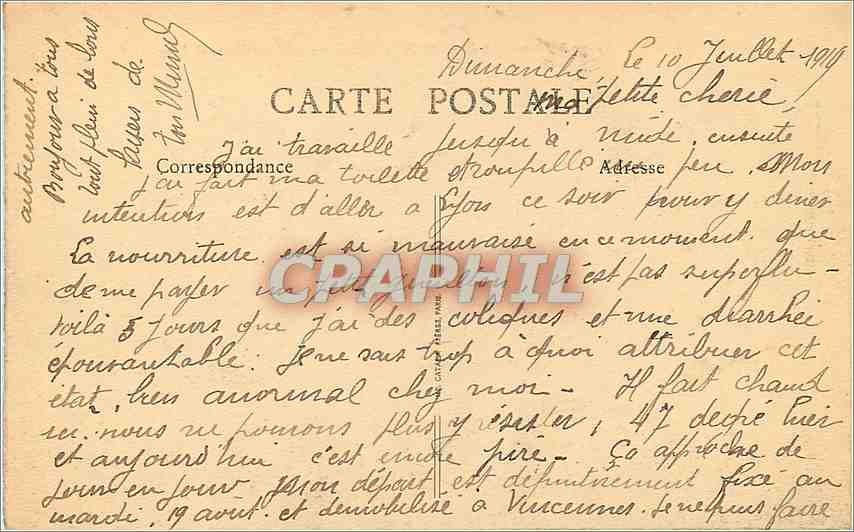 Dimanche, le 10 Juillet 1919
CARTE POSTALE
ma petite cherie,
J'ai travaillé jusqu'à midi, ensuite
Correspondance
Adresse
j'ai fait ma toilette et roupillé un peu. Mon
intention est d'aller a Lyon ce soir pour y diner
La nourriture est si mauvaise en ce moment que
de me payer un petit gueulton, n'est pas superflu -
CPARAMA
CPAPHIL
voilà 5 jours que j'ai des coliques et une diarrhée
épouvantable. je ne sais trop à quoi attribuer cet
état, bien anormal chez moi - Il fait chaud
ici. nous ne pouvons plus y resister, 47 degré hier
et aujourd'hui c'est encore piré - Ça approche de
jour en jour. Mon départ est définitivement fixé au
mardi, 19 août. et demobilisé à Vincennes. Je ne puis faire
autrement.
Bonjour a tous
tout plein de bons
baisers de
ton
CATALA FRÈRES, PARIS